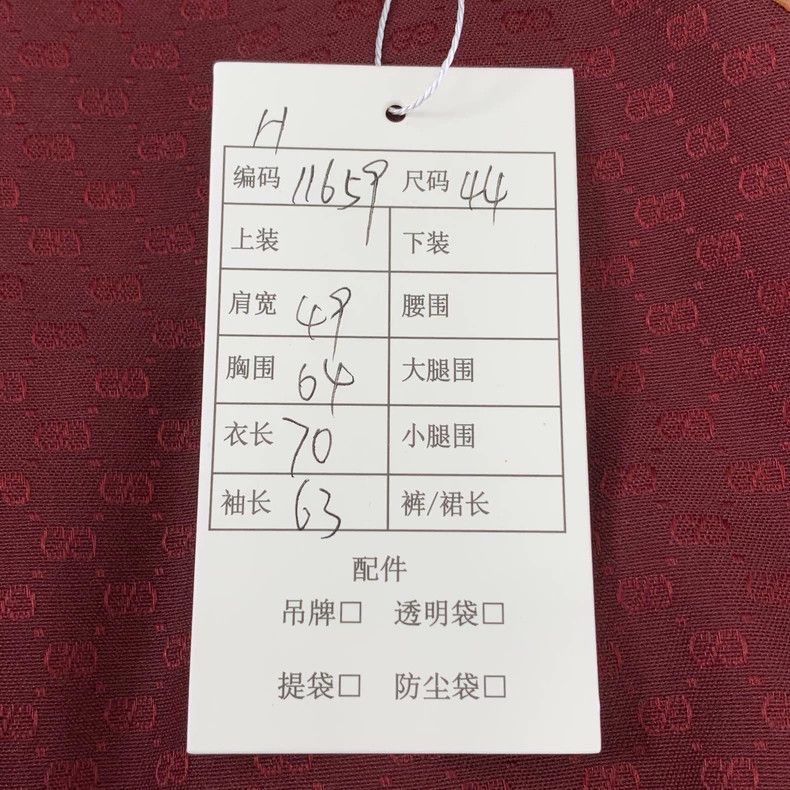 H
编码 11659 尺码 44
上装 下装
肩宽 49 腰围
胸围 64 大腿围
衣长 70 小腿围
袖长 63 裤/裙长
配件
吊牌□ 透明袋□
提袋□ 防尘袋□